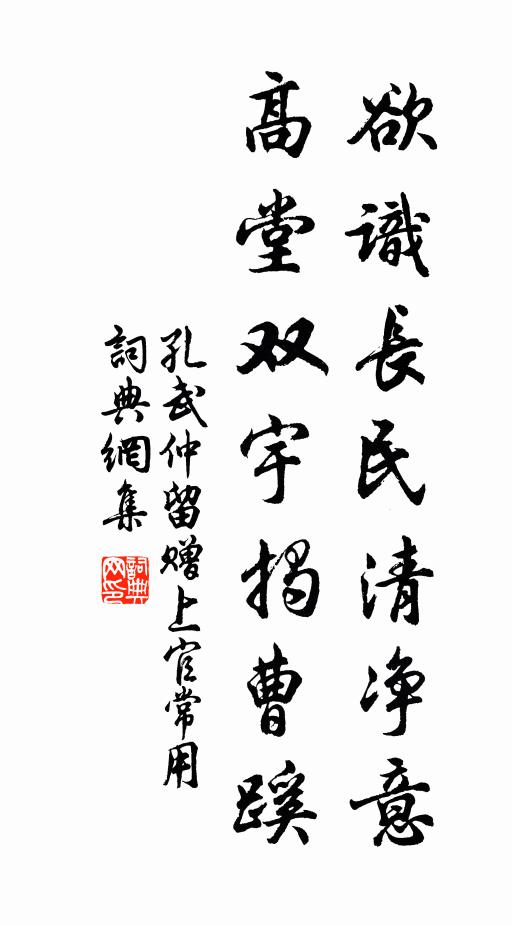 欲識長民清净意
高堂双宇揭曹蹊
孔武仲留赠上官常用
詞典網集
詞典网印